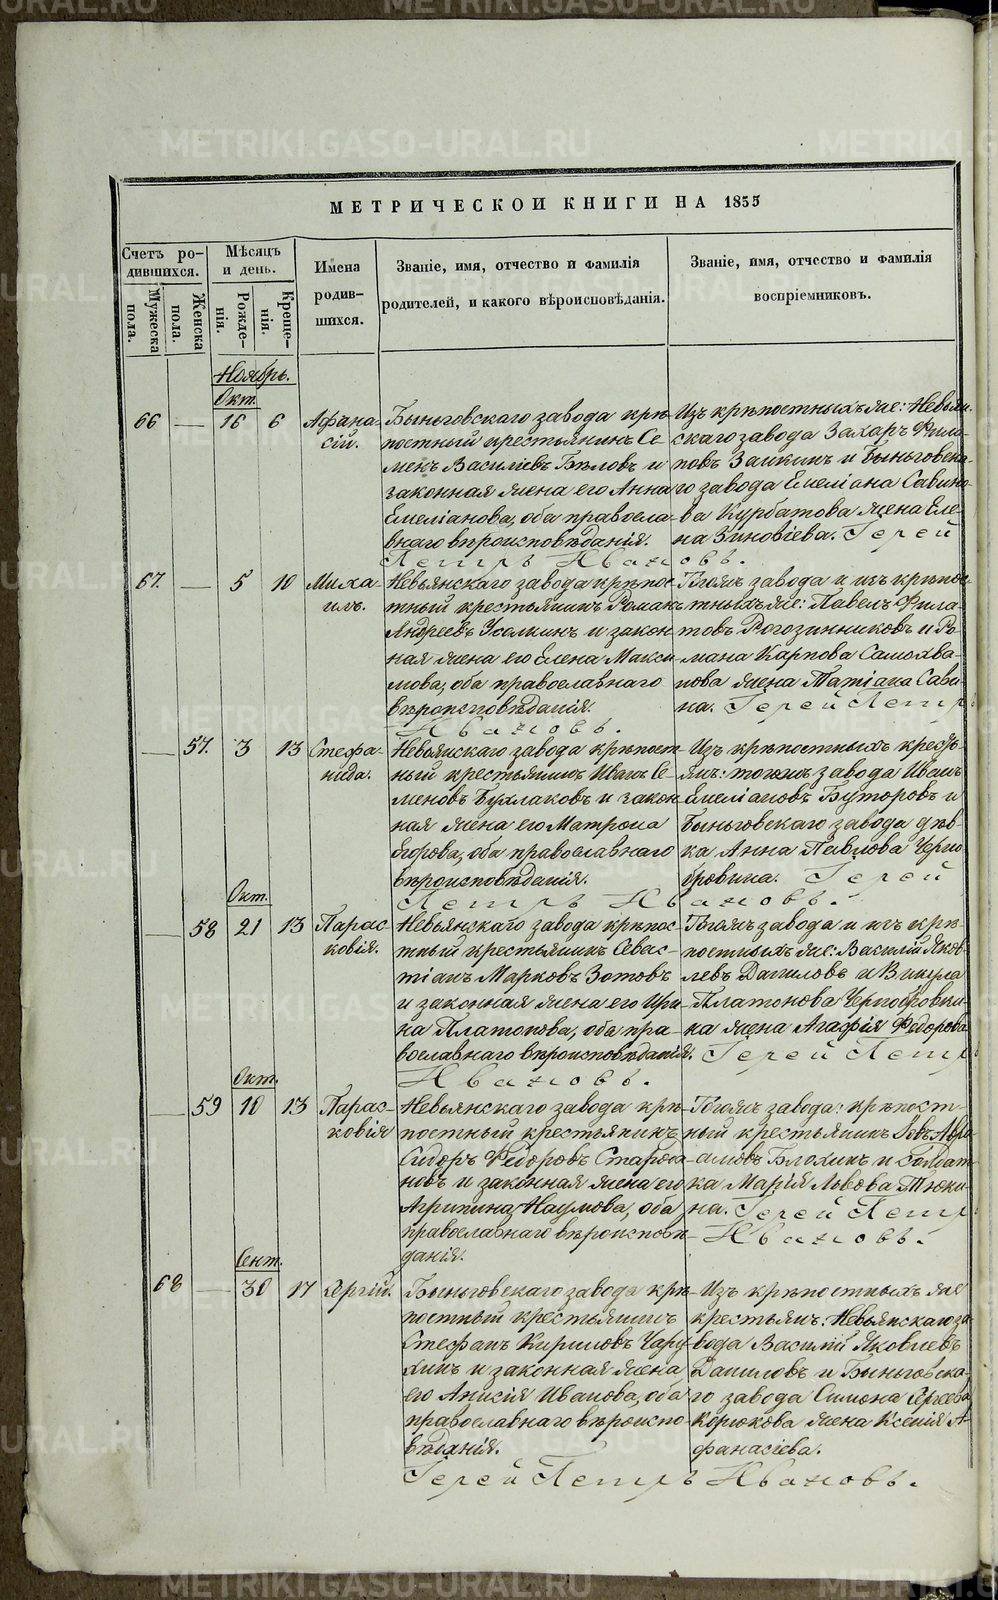 МЕТРИЧЕСКОЙ КНИГИ НА 1855
Счетъ ро-
дившихся.
Мужеска
пола.
Женска
пола.
Мѣсяцъ
и день.
Рожде-
нія.
Креще-
нія.
Имена
родив-
шихся.
Званіе, имя, отчество и фамилія
родителей, и какого вѣроисповѣданія.
Званіе, имя, отчество и фамилія
воспріемниковъ.
Ноябрь.
Окт.
66 — 16 6
Афана-
сій.
Быньговскаго завода крѣ-
постный крестьянинъ Се-
менъ Василіевъ Бѣловъ и
законная жена его Анна
Емеліанова, оба правосла-
внаго вѣроисповѣданія.
Изъ крѣпостныхъ же: Невьян-
скаго завода Захаръ Фили-
повъ Заикинъ и Быньговска-
го завода Емеліана Савино-
ва Курбатова жена Еле-
на Зиновіева. Іерей
Петръ Ивановъ.
67. — 5 10
Миха-
илъ.
Невьянскаго завода крѣпос-
тный крестьянинъ Романъ
Андреевъ и закон-
ная жена его Елена Макси-
мова, оба православнаго
вѣроисповѣданія.
Тогожъ завода и изъ крѣпос-
тныхъ же: Павелъ Фила-
товъ Рогозинниковъ и Ро-
мана Карпова Самохва-
лова жена Татіана Сави-
на. Іерей Петръ
Ивановъ.
— 57. 3 13
Стефа-
нида.
Невьянскаго завода крѣпост-
ный крестьянинъ Иванъ Се-
меновъ Бухлаковъ и закон-
ная жена его Матрона
Егорова, оба православнаго
вѣроисповѣданія.
Изъ крѣпостныхъ кресть-
янъ: тогожъ завода Иванъ
Емеліановъ Буторовъ и
Быньговскаго завода дѣв-
ка Анна Павлова Черно-
бровина. Іерей
Петръ Ивановъ.
Окт.
— 58 21 13
Парас-
ковія.
Невьянскаго завода крѣпос-
тный крестьянинъ Севас-
тіанъ Марковъ Зотовъ
и законная жена его Ири-
на Платонова, оба пра-
вославнаго вѣроисповѣданія.
Тогожъ завода и изъ крѣ-
постныхъ же: Василій Яков-
левъ Даниловъ и Викула
Платонова Чернобровки-
на жена Агафія Федорова
Іерей Петръ
Ивановъ.
Окт.
— 59 10 13
Парас-
ковія
Невьянскаго завода крѣ-
постный крестьянинъ
Сидоръ Федоровъ
и законная жена его
Агрипина Наумова, оба
православнаго вѣроисповѣ-
данія.
Тогожъ завода: крѣпост-
ный крестьянинъ Левъ Авра-
амовъ Блохинъ и солдат-
ка Марія Львова Тюки-
на. Іерей Петръ
Ивановъ.
Сент.
68 — 30 17
Сергій.
Быньговскаго завода крѣ-
постный крестьянинъ
Стефанъ Кириловъ
и законная жена
его Анисія Иванова, оба
православнаго вѣроиспо-
вѣданія.
Изъ крѣпостныхъ же
крестьянъ: Невьянскаго за-
вода Василій Яковлевъ
Даниловъ и Быньговска-
го завода Симона Сергеева
Корюкова жена Ксенія А-
фанасіева.
Іерей Петръ Ивановъ.
METRIKI.GASO-URAL.RU